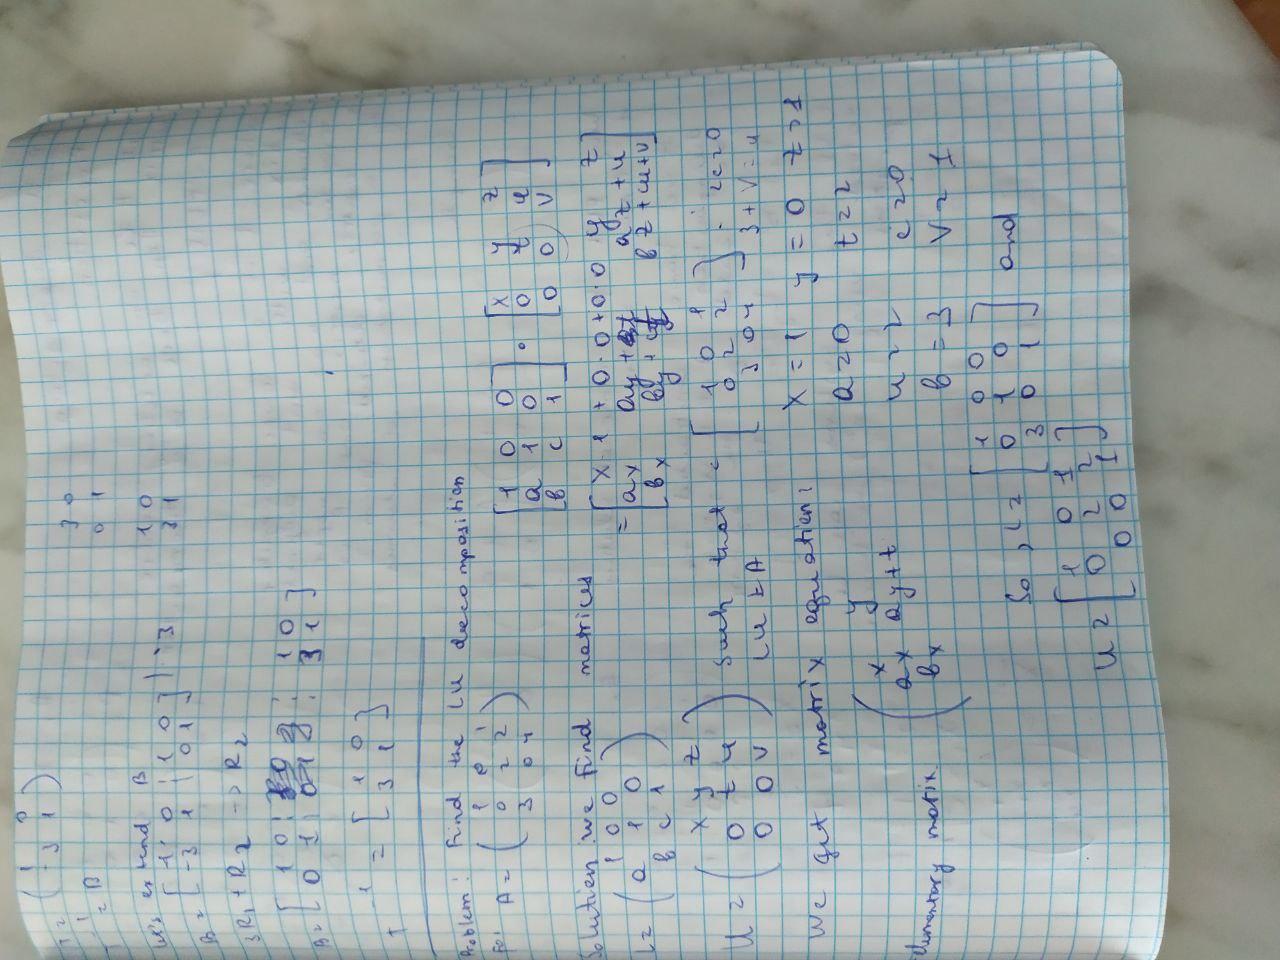 ( 1 0
-3 1 )
= B
3 0
0 1
extend B
B = [ 1 0 | 1 0
-3 1 | 0 1 ] | · 3
1 0
3 1
3R1 + R2 -> R2
B = [ 1 0 | 1 0
0 1 | 3 1 ]
-1 = [ 1 0
3 1 ]
Problem: Find the LU decomposition
For A = ( 1 0 1
0 2 2
3 0 4 )
Solution: we Find matrices
L = ( 1 0 0
a 1 0
b c 1 )
U = ( x y z
0 t u
0 0 v )
Such that
LU = A
[ 1 0 0
a 1 0
b c 1 ] · [ x y z
0 t u
0 0 v ]
= [ x · 1 + 0 · 0 + 0 · 0 y z
ax ay + az + u
bx by + bz + cu + v ]
[ 1 0 1
0 2 2
3 0 4 ] ; 2c = 0
3 + v = 4
We get matrix equation:
( x y
ax ay + t
bx
x = 1 y = 0 z = 1
a = 0 t = 2
u = 2 c = 0
b = 3 v = 1
Elementary matrix
So, L = [ 1 0 0
0 1 0
3 0 1 ] and
U = [ 1 0 1
0 2 2
0 0 1 ]